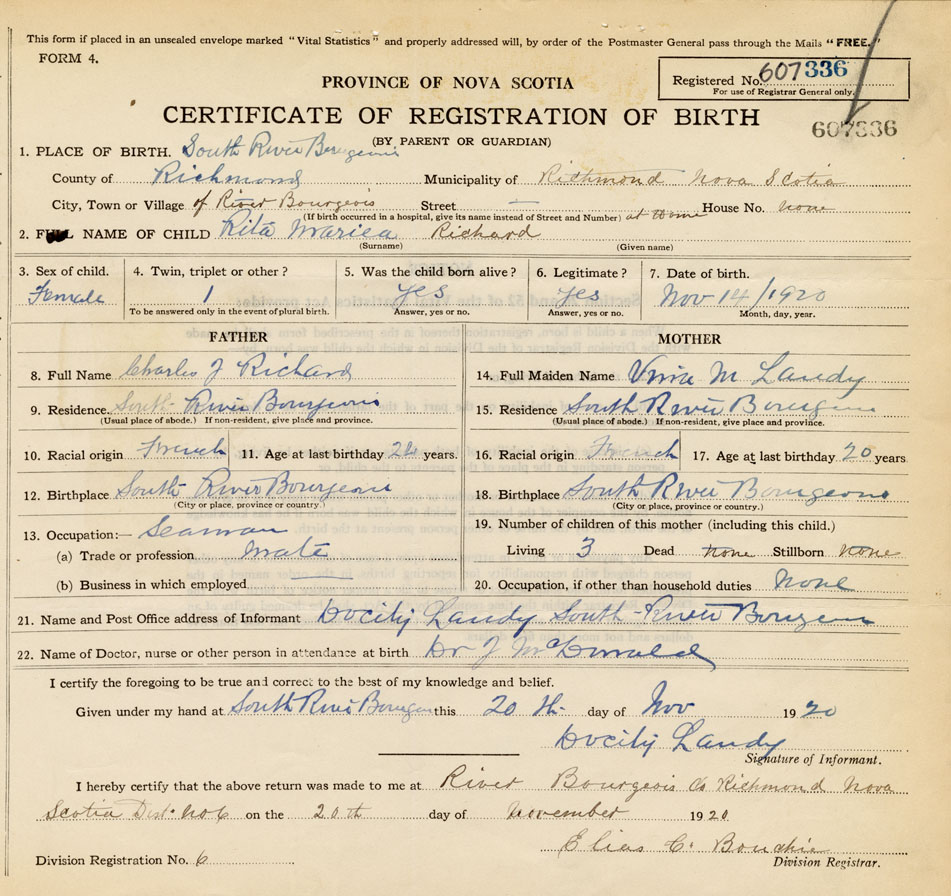 This form if placed in an unsealed envelope marked "Vital Statistics" and properly addressed will, by order of the Postmaster General pass through the Mails "FREE."
FORM 4.
Registered No. 607336
For use of Registrar General only.
PROVINCE OF NOVA SCOTIA
CERTIFICATE OF REGISTRATION OF BIRTH
607336
(BY PARENT OR GUARDIAN)
1. PLACE OF BIRTH. South River Bourgeois
County of Richmond Municipality of Richmond Nova Scotia
City, Town or Village of River Bourgeois Street — House No. none
(If birth occurred in a hospital, give its name instead of Street and Number) at Home
2. FULL NAME OF CHILD Rita Richard
(Surname) (Given name)
3. Sex of child. 4. Twin, triplet or other? 5. Was the child born alive? 6. Legitimate? 7. Date of birth.
Female 1 yes yes Nov 14/1920
To be answered only in the event of plural birth. Answer, yes or no. Answer, yes or no. Month, day, year.
FATHER MOTHER
8. Full Name Charles J Richard 14. Full Maiden Name M Landy
9. Residence. South River Bourgeois 15. Residence South River Bourgeois
(Usual place of abode.) If non-resident, give place and province. (Usual place of abode.) If non-resident, give place and province.
10. Racial origin French 11. Age at last birthday years. 16. Racial origin French 17. Age at last birthday 20 years
12. Birthplace South River Bourgeois 18. Birthplace South River Bourgeois
(City or place, province or country.) (City or place, province or country.)
13. Occupation:— Seaman 19. Number of children of this mother (including this child.)
(a) Trade or profession mate Living 3 Dead none Stillborn none
(b) Business in which employed 20. Occupation, if other than household duties None
21. Name and Post Office address of Informant Docity Landy South River Bourgeois
22. Name of Doctor, nurse or other person in attendance at birth Dr J McDonald
I certify the foregoing to be true and correct to the best of my knowledge and belief.
Given under my hand at South River Bourgeois this 20 th day of Nov 1920
Docity Landy
Signature of Informant.
I hereby certify that the above return was made to me at River Bourgeois Co Richmond Nova
Scotia Dist. No 6 on the 20th day of November 1920
Elias C. Bouchie
Division Registration No. 6 Division Registrar.